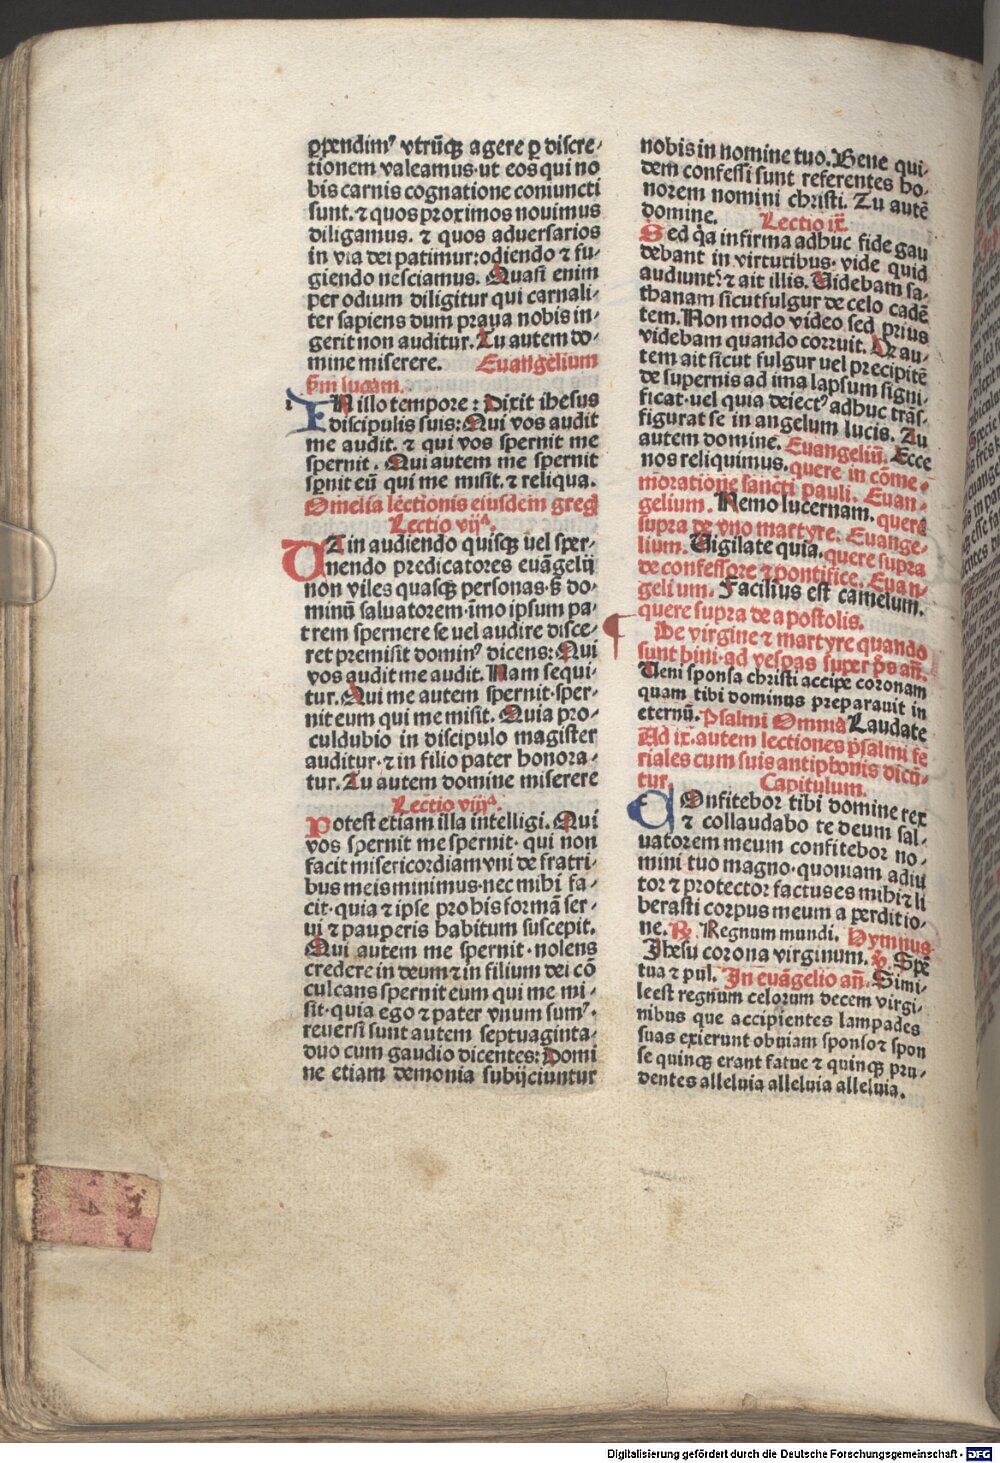 ꝑpendimꝰ vtrūqꝫ agere ꝑ discre-
tionem valeamus·ut eos qui no
bis carnis cognatione coniuncti
sunt. ⁊ quos proximos nouimus
diligamus. ⁊ quos aduersarios
in via dei patimur:odiendo ⁊ fu-
giendo nesciamus. Quasi enim
per odium diligitur qui carnali-
ter sapiens dum praua nobis in-
gerit non auditur. Tu autem do-
mine miserere. Euangelium
scḋm lucam.
IN illo tempore: Dixit ihesus
discipulis suis: Qui vos audit
me audit. ⁊ qui vos spernit me
spernit. Qui autem me spernit
spnit eū qui me misit. ⁊ reliqua.
Omelia lectionis eiusdem greg
Lectio vijᵃ.
UT in audiendo quisqꝫ uel sper-
nendo predicatores euāgelij
non viles quasqꝫ personas·sꝫ do-
minū saluatorem·īmo ipsum pa-
trem spernere se uel audire disce-
ret premisit dominꝰ dicens: Qui
vos audit me audit. Nam sequi-
tur. Qui me autem spernit·sper-
nit eum qui me misit. Quia pro-
culdubio in discipulo magister
auditur·⁊ in filio pater honora-
tur. Tu autem domine miserere
Lectio viijᵃ.
Potest etiam illa intelligi. Qui
vos spernit me spernit· qui non
facit misericordiam vni de fratri-
bus meis minimus·nec mihi fa-
cit·quia ⁊ ipse pro his formā ser-
ui ⁊ pauperis habitum suscepit.
Qui autem me spernit·nolens
credere in deum ⁊ in filium dei cō
culcans spernit eum qui me mi-
sit·quia ego ⁊ pater vnum sumꝰ.
reuersi sunt autem septuaginta-
duo cum gaudio dicentes: Domi
ne etiam demonia subijciuntur
nobis in nomine tuo. Bene qui-
dem confessi sunt referentes ho-
norem nomini christi. Tu autē
domine. Lectio ix̄.
Sed q̇a infirma adhuc fide gau
debant in virtutibus· vide quid
audiunt? ⁊ ait illis. Videbam sa-
thanam sicut fulgur de celo cadē
tem. Non modo video sed prius
videbam quando corruit. Qr au-
tem ait sicut fulgur uel precipitē
de supernis ad ima lapsum signi-
ficat·uel quia deiectꝰ adhuc trās-
figurat se in angelum lucis. Tu
autem domine. Euangeliū. Ecce
nos reliquimus. quere in cōme-
moratione sancti pauli. Euan-
gelium. Nemo lucernam. quere
supra de vno martyre. Euange-
lium. Vigilate quia. quere supra
de confessore ⁊ pontifice. Euan-
gelium. Facilius est camelum.
quere supra de apostolis.
¶ De virgine ⁊ martyre quando
sunt bini·ad vespas super p̄s an̄.
Veni sponsa christi accipe coronam
quam tibi dominus preparauit in
eternū. Psalmi Omnia Laudate
Ad ix̄. autem lectiones psalmi fe
riales cum suis antiphonis dicū-
tur. Capitulum.
COnfitebor tibi domine rex
⁊ collaudabo te deum sal-
uatorem meum confitebor no-
mini tuo magno·quoniam adiu
tor ⁊ protector factus es mihi ⁊ li
berasti corpus meum a perditio-
ne. ℟. Regnum mundi. Hymnus
Ihesu corona virginum. ℣. Spē
tua ⁊ pul. In euāgelio an̄. Simi-
le est regnum celorum decem virgi-
nibus que accipientes lampades
suas exierunt obuiam sponso ⁊ spon
se quinqꝫ erant fatue ⁊ quinqꝫ pru-
dentes alleluia alleluia alleluia.
Digitalisierung gefördert durch die Deutsche Forschungsgemeinschaft - DFG